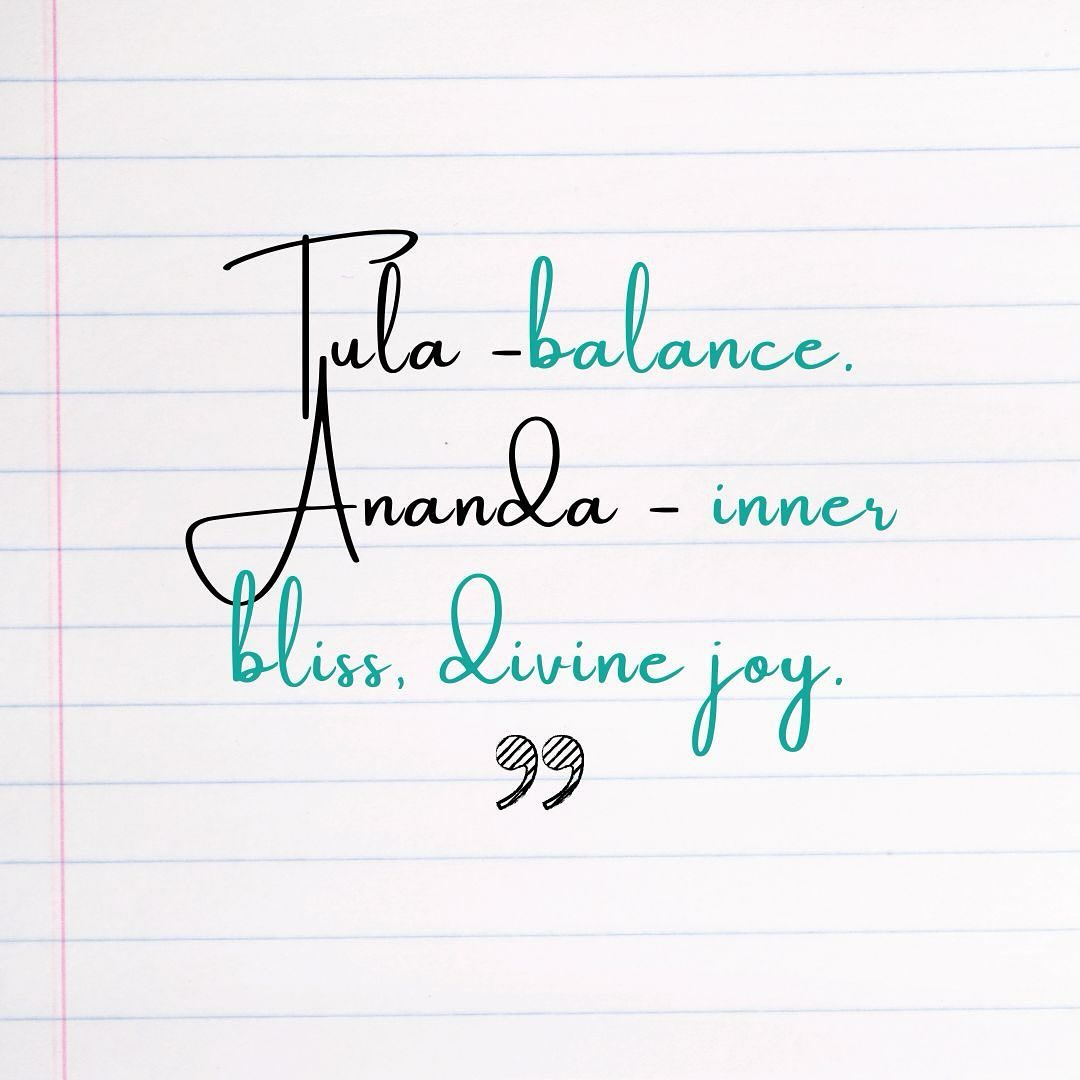 Tula -balance.
Ananda - inner
bliss, divine joy.
”